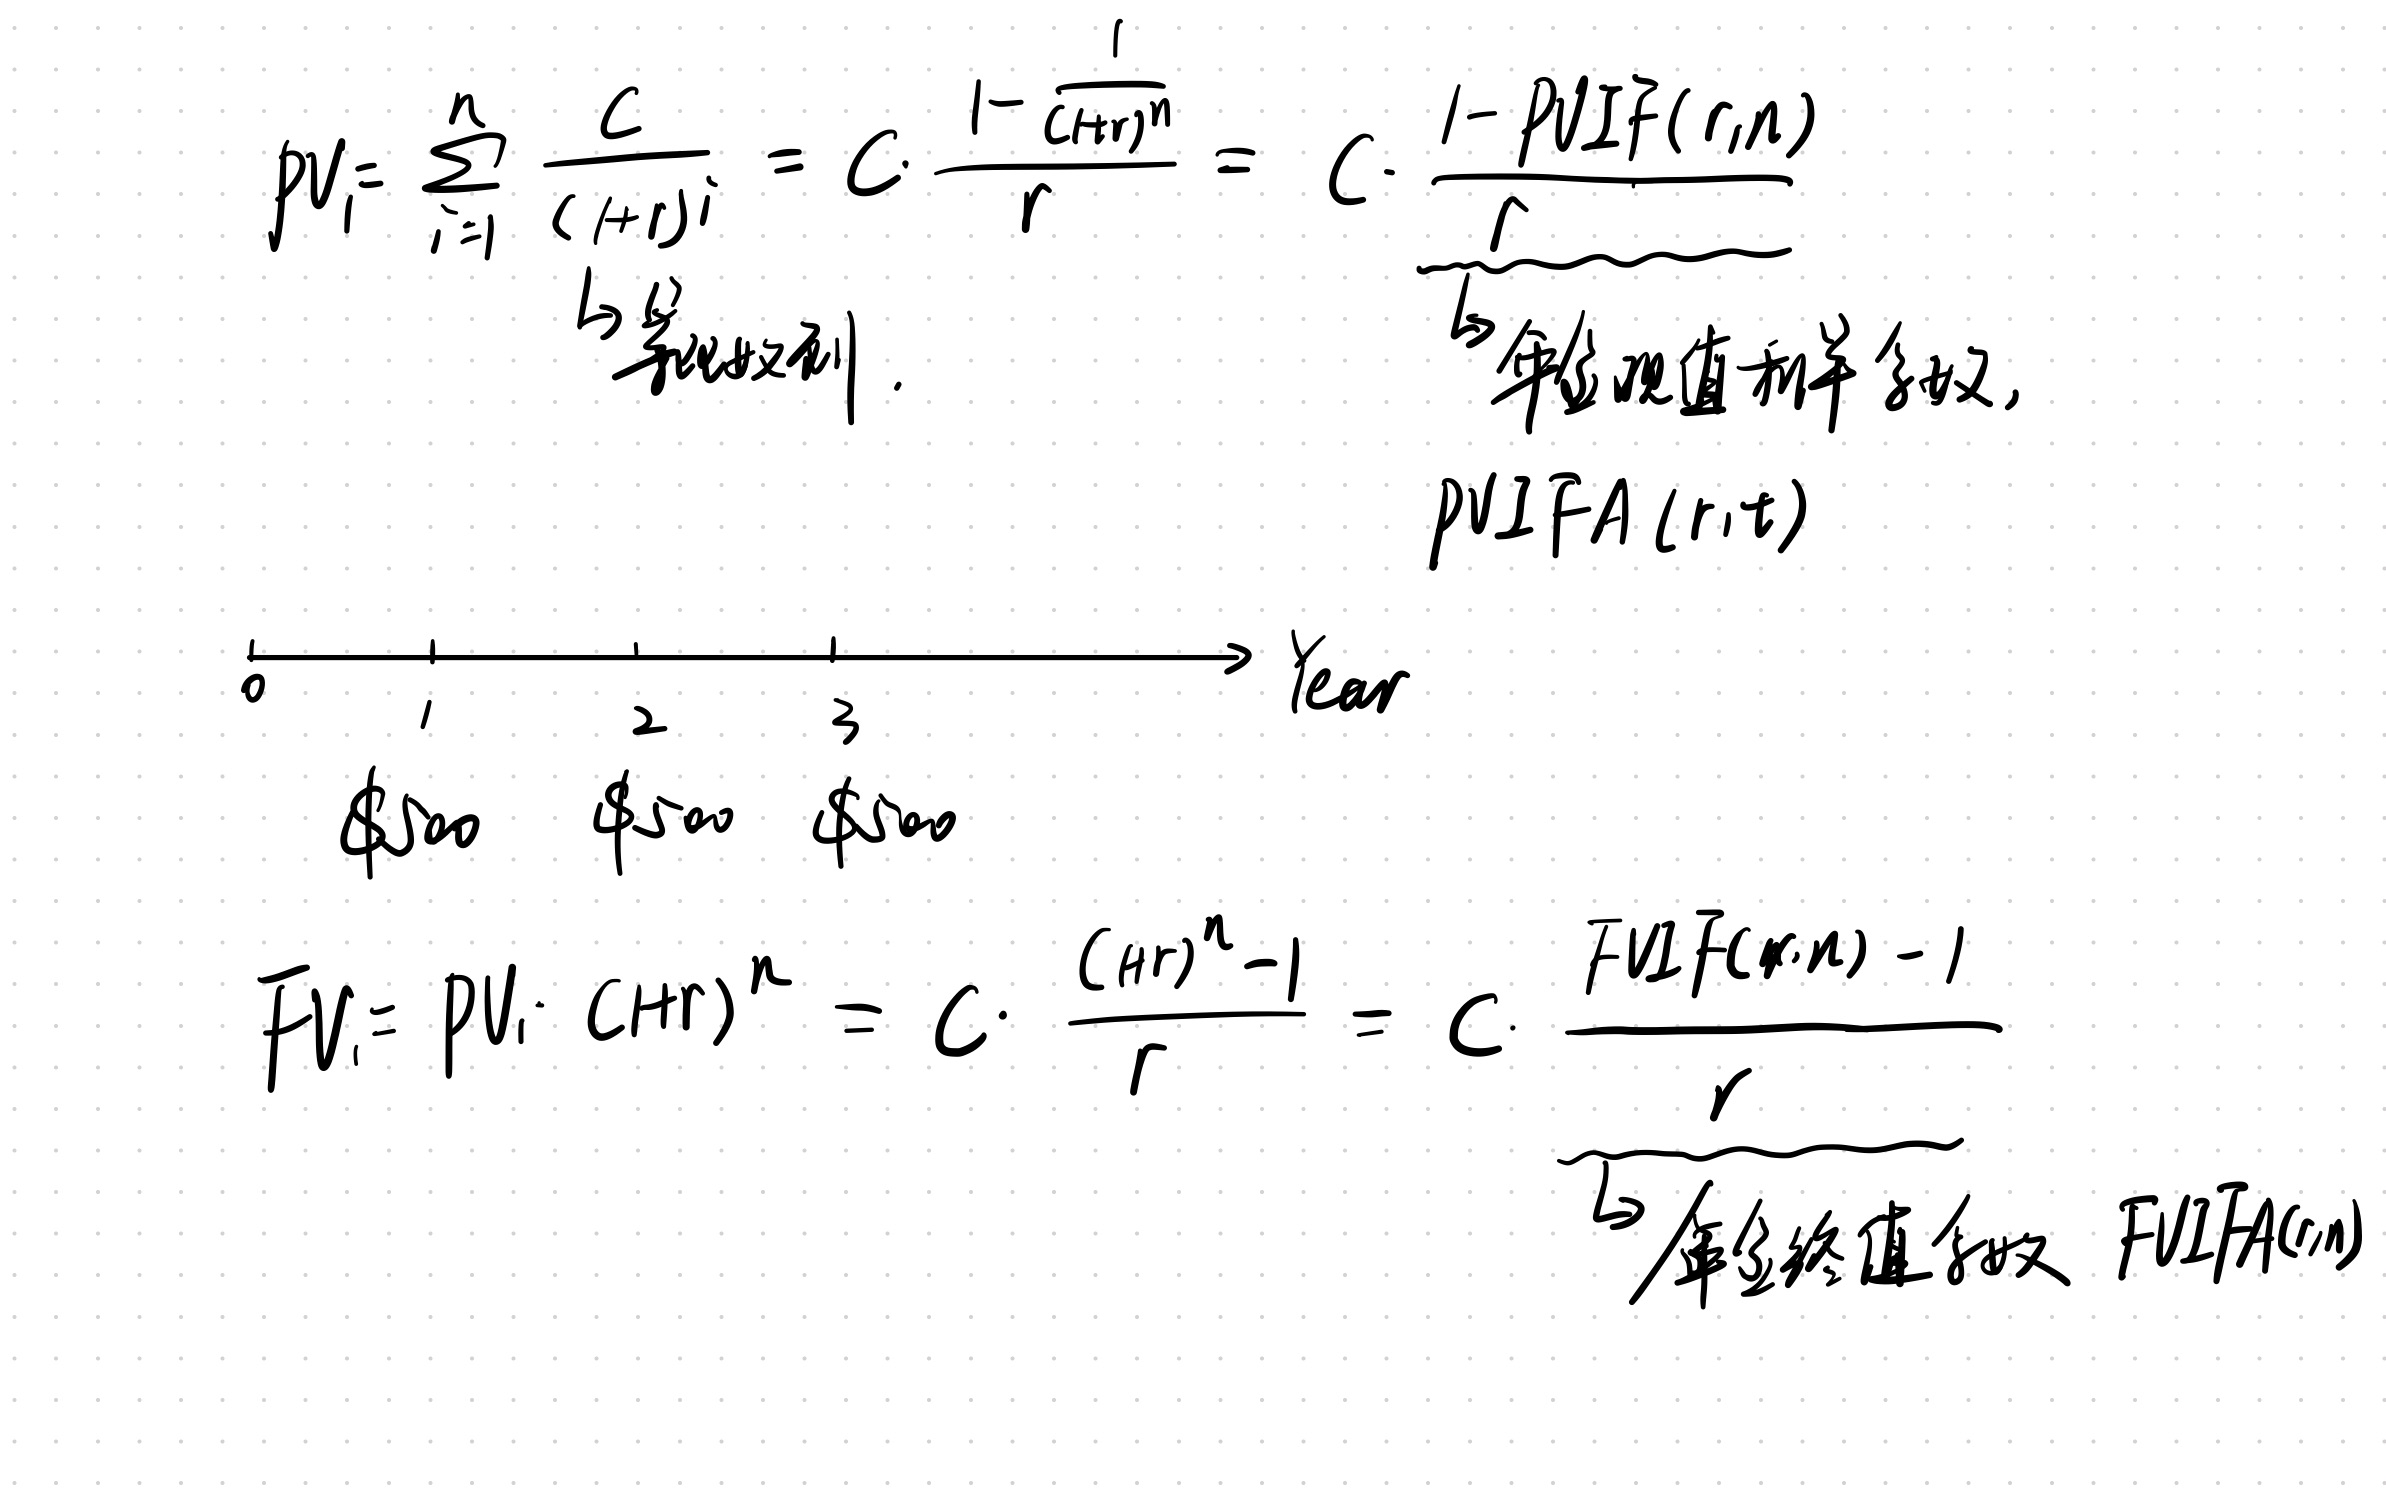 PV₁ = Σ_{i=1}^{n} C/(1+r)^i = C · (1 - 1/(1+r)^n)/r = C · (1 - PVIF(r,n))/r
等比数列.
年金现值利率系数,
PVIFA(r,t)
0 1 2 3 Year
$500 $500 $500
FV₁ = PV₁ · (1+r)^n = C · ((1+r)^n - 1)/r = C · (FVIF(r,n) - 1)/r
年金终值系数 FVIFA(r,n)